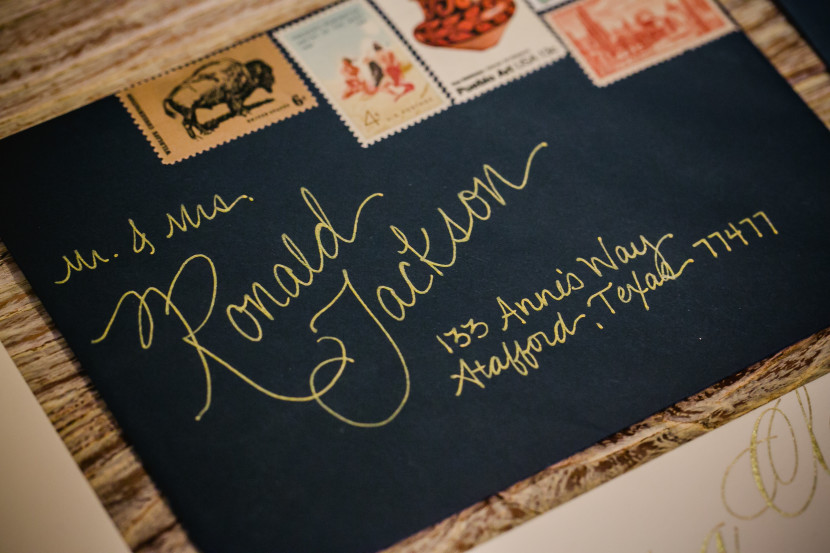 6¢
4¢
Pueblo Art USA 13c
Mr. & Mrs.
Ronald
Jackson
133 Annie's Way
Stafford, Texas 77477